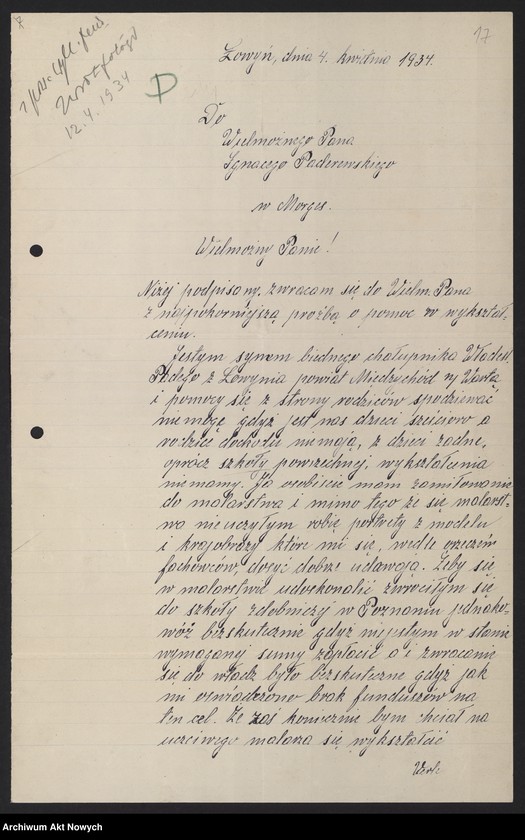 17
12.4.1934
Łowyń, dnia 4. kwietnia 1934.
Do
Wielmożnego Pana
Ignacego Paderewskiego
w Morges.
Wielmożny Panie!
Niżej podpisany, zwracam się do Wielm. Pana
z najpokorniejszą prośbą o pomoc w wykształ-
ceniu.
Jestym synem biednego chałupnika Władsł.
z Łowynia powiat Międzychód n/ Wartą
i pomocy się z strony rodziców spodziewać
niemogę gdyż jest nas dzieci sześcioro a
rodzice dochodu niemają, z dzieci żadne,
oprócz szkoły powszechnej, wykształcenia
niemamy. Ja osobiście mam zamiłowanie
do malarstwa i mimo tego że się malarst-
wa nieuczyłym robię portrety z modelu
i krajobrazy które mi się, wedle orzeczeń
fachowców, dosyć dobrze udawają. Żeby się
w malarstwie udoskonalić zwróciłym się
do szkoły zdobniczy w Poznaniu jednako-
wóż bezskutecznie gdyż niejestym w stanie
wymaganej sumy zapłacić a i zwracanie
się do władz było bezskuteczne gdyż jak
mi oświadczono brak funduszów na
ten cel. Że zaś koniecznie bym chciał na
uczciwego malarza się wykształcić
Vert:
Archiwum Akt Nowych